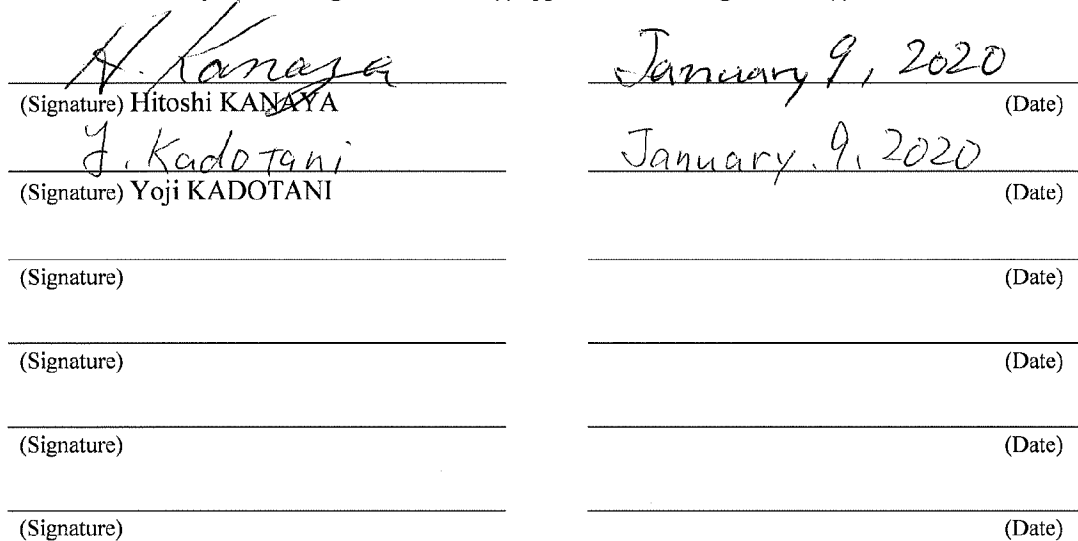 H. Kanaya January 9, 2020
(Signature) Hitoshi KANAYA (Date)
Y. Kadotani January. 9, 2020
(Signature) Yoji KADOTANI (Date)
(Signature) (Date)
(Signature) (Date)
(Signature) (Date)
(Signature) (Date)